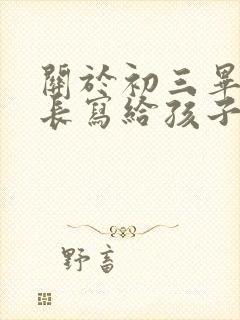 關於初三畢
長寫給孩子
野畜